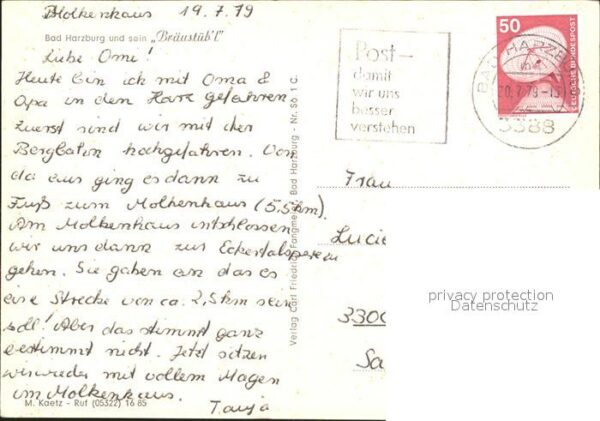 Molkenhaus 19.7.79
Bad Harzburg und sein „Bräustüb'l"
Liebe Omi!
Heute bin ich mit Oma &
Opa in den Harz gefahren
zuerst sind wir mit der
Bergbahn hochgefahren. Von
da aus ging es dann zu
Fuß zum Molkenhaus (5,5km).
Am Molkenhaus entschlossen
wir uns dann zur Eckertalsperre zu
gehen. Sie gaben an das es
eine Strecke von ca. 2,5 km sein
soll! Aber das stimmt ganz
bestimmt nicht. Jetzt sitzen
wir wieder mit vollem Magen
im Molkenhaus.
Tanja
M. Kaetz - Ruf (05322) 16 85
Verlag Carl Friedrich Fangme Bad Harzburg - Nr. S6 1 G.
Post –
damit
wir uns
besser
verstehen
50
DEUTSCHE BUNDESPOST
BAD HARZB
20.7.79-13
3388
Frau
Lucie
3300
privacy protection
Datenschutz